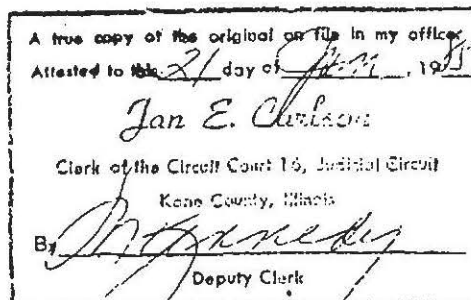 A true copy of the original on file in my office.
Attested to this 21 day of Jan, 19
Jan E. Carlson
Clerk of the Circuit Court 16, Judicial Circuit
Kane County, Illinois
By
Deputy Clerk